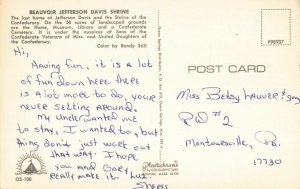 BEAUVOIR JEFFERSON DAVIS SHRINE
The last home of Jefferson Davis and the Shrine of the
Confederacy. On the 50 acres of landscaped grounds
are the Home, Museum, Library and a Confederate
Cemetery. It is under the auspices of Sons of the
Confederate Veterans of Miss. and United Daughters of
the Confederacy.
Color by Randy
Hi,
Having fun, it is a lot
of fun down here there
is a lot more to do, your
never setting around.
My uncle wanted me
to stay, I wanted to, but
thing don't just work out
that way. I hope
you and Gary
really make it. Luv
OS-108
POST CARD
Miss Betsy
RD #2
Montoursville, Pa.
17730